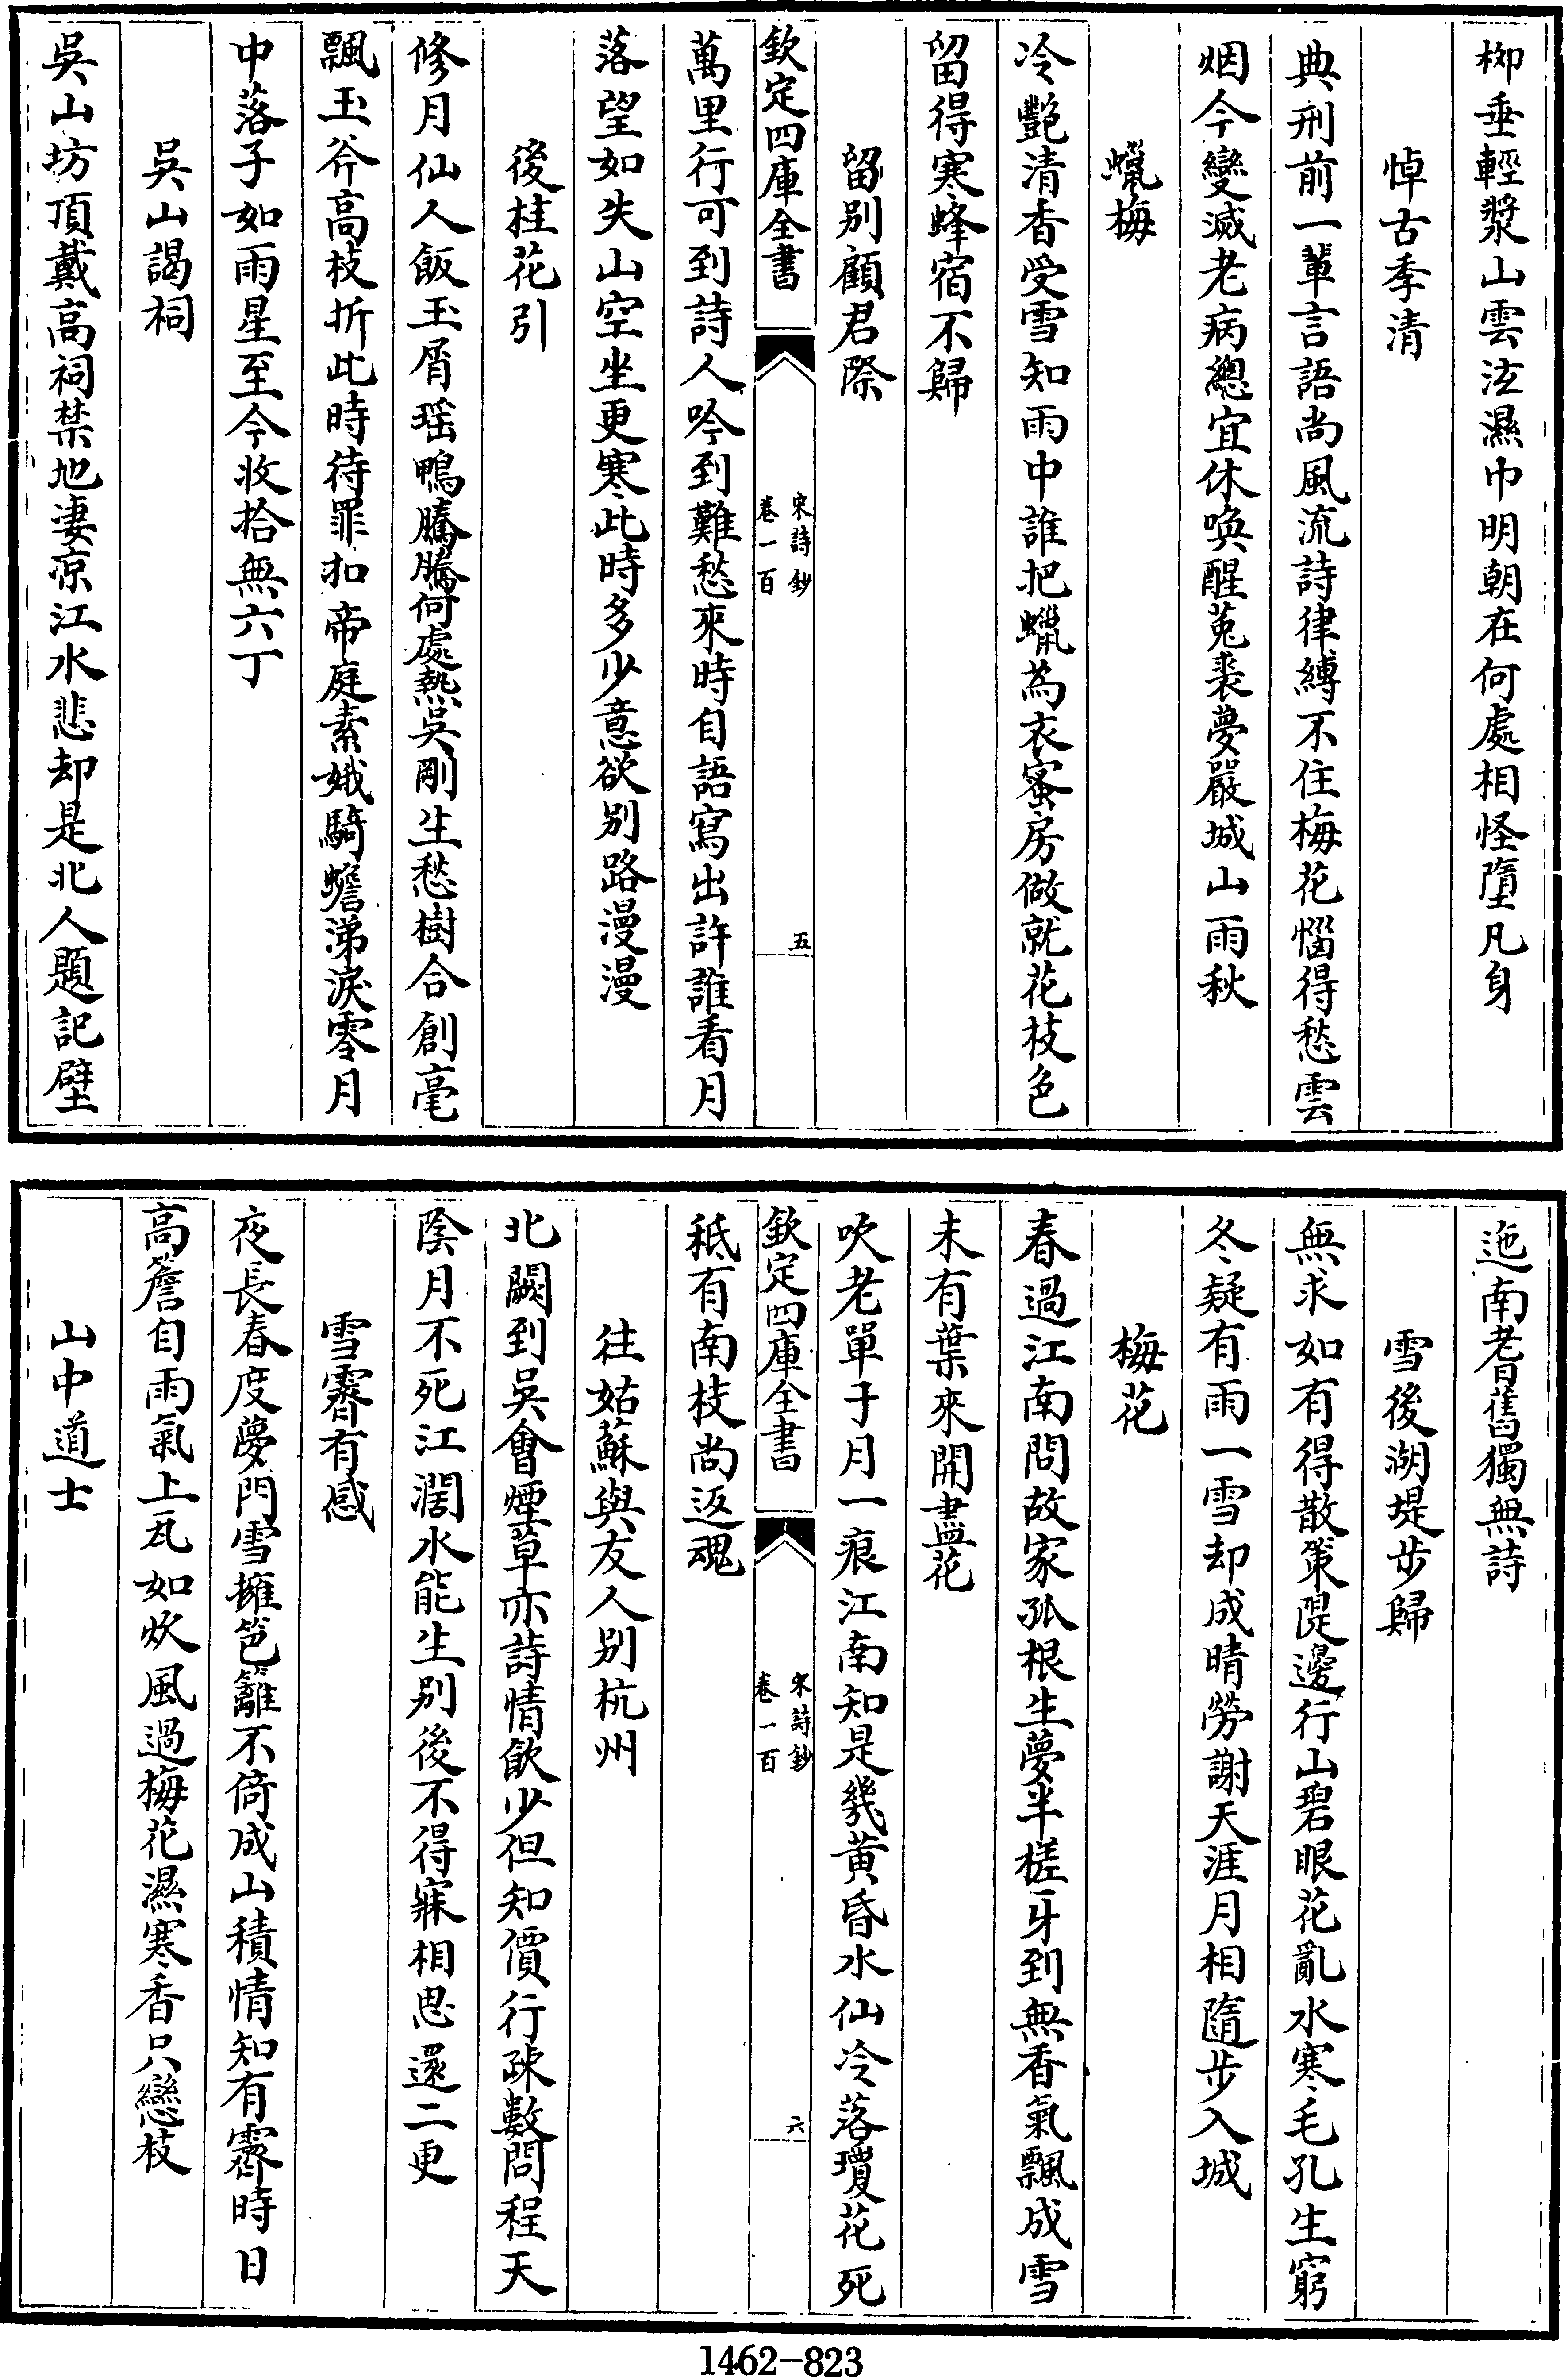 栁垂輕漿山雲泫濕巾明朝在何處相怪墮凡身
悼古季清
典刑前一輩言語尚風流詩律縛不住梅花惱得愁雲
烟今變滅老病總宜休喚醒菟裘夢嚴城山雨秋
蠟梅
冷艷清香受雪知雨中誰把蠟為衣蜜房做就花枝色
留得寒蜂宿不歸
留别顧君際
欽定四庫全書
宋詩鈔
卷一百
五
萬里行可到詩人吟到難愁來時自語寫出許誰看月
落望如失山空坐更寒此時多少意欲别路漫漫
後桂花引
修月仙人飯玉屑瑶鴨騰騰何處熱吳剛生愁樹合創毫
飄玉斧高枝折此時待罪扣帝庭素娥騎蟾涕淚零月
中落子如雨星至今收拾無六丁
吳山謁祠
吳山坊頂戴高祠禁地凄凉江水悲却是北人題記壁
迤南耆舊獨無詩
雪後湖堤步歸
無求如有得散策隄邊行山碧眼花亂水寒毛孔生窮
冬疑有雨一雪却成晴勞謝天涯月相隨步入城
梅花
春過江南問故家孤根生夢半槎牙到無香氣飄成雪
未有葉來開盡花
吹老單于月一痕江南知是幾黄昏水仙冷落瓊花死
欽定四庫全書
宋詩鈔
卷一百
六
秪有南枝尚返魂
往姑蘇與友人别杭州
北闕到吳會煙草亦詩情飲少但知價行疎數問程天
陰月不死江濶水能生别後不得寐相思還二更
雪霽有感
夜長春度夢門雪擁笆籬不倚成山積情知有霽時日
高簷自雨氣上瓦如炊風過梅花濕寒香只戀枝
山中道士
1462-823